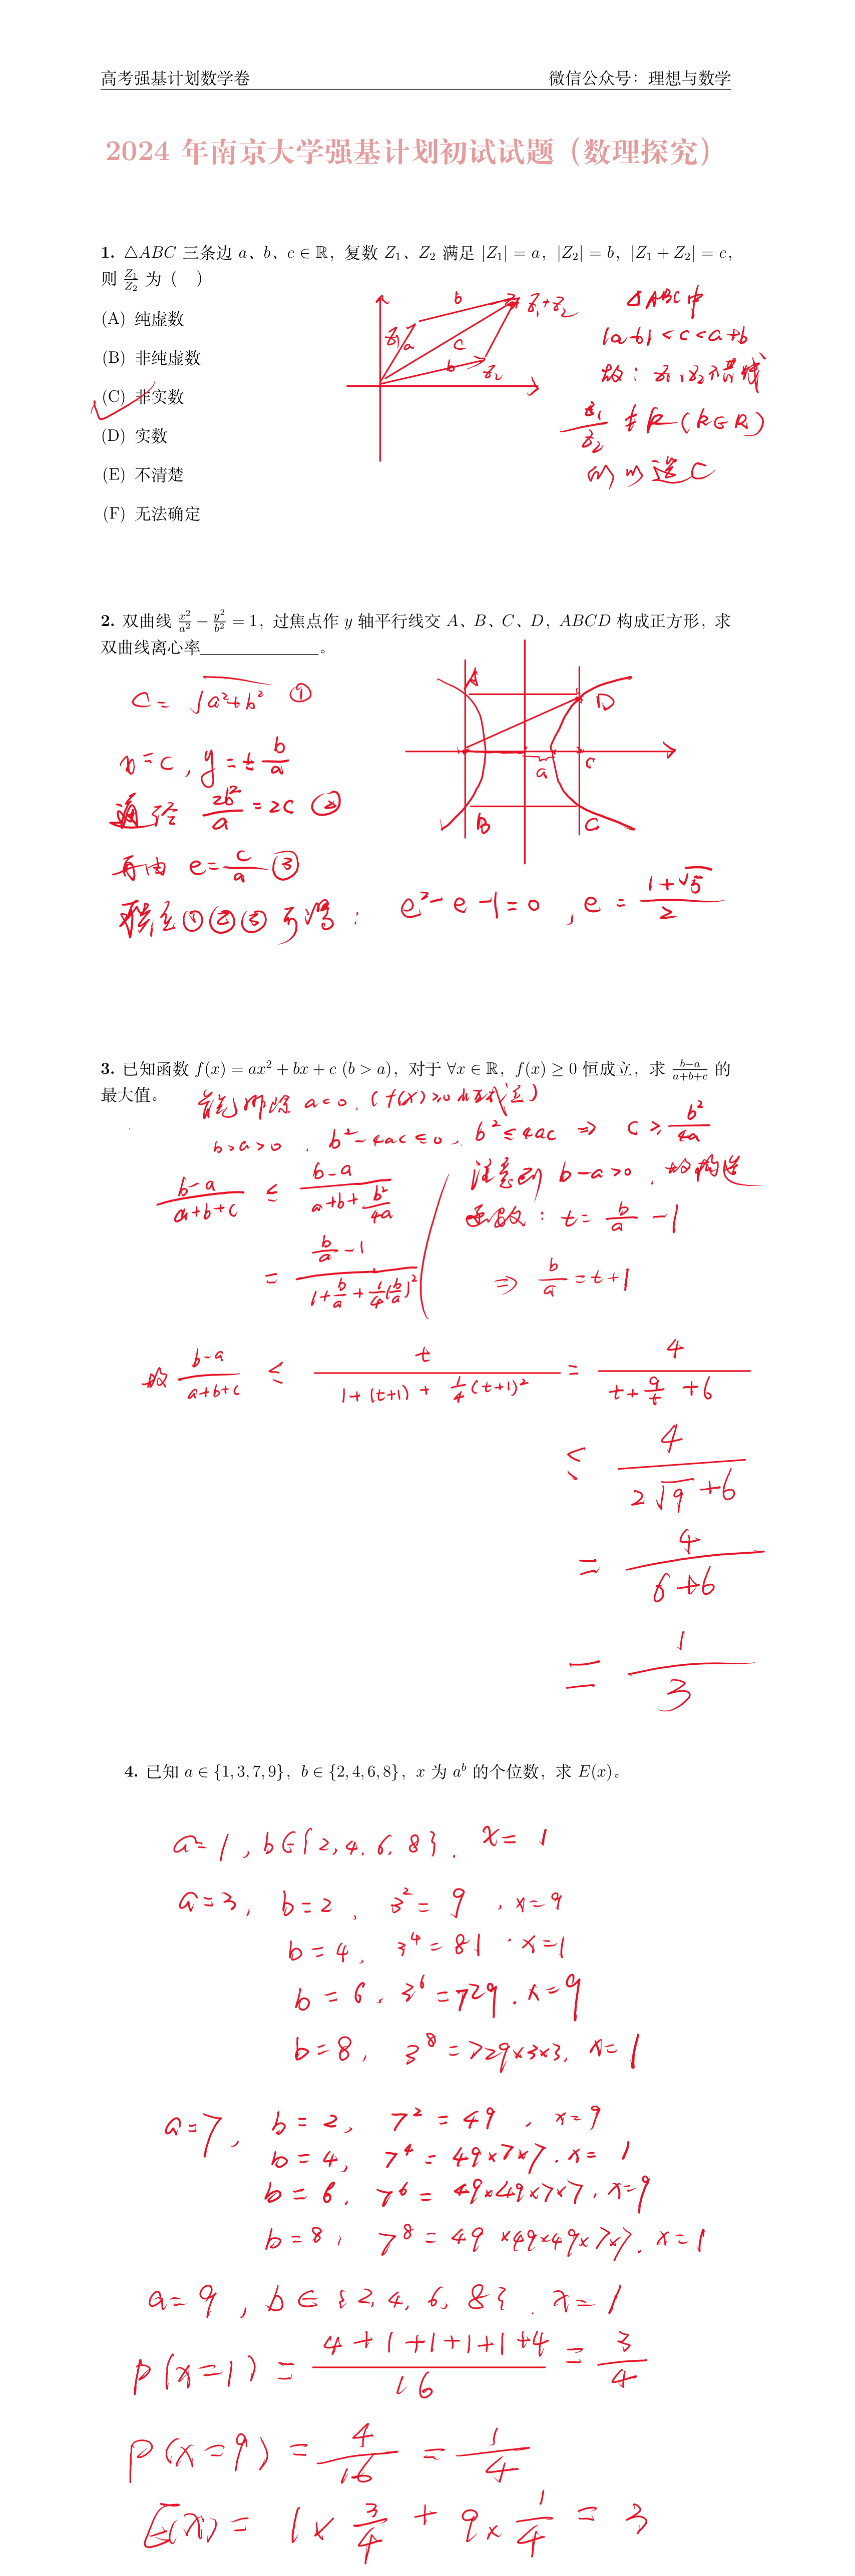 高考强基计划数学卷 微信公众号：理想与数学
2024 年南京大学强基计划初试试题（数理探究）
1. △ABC 三条边 a、b、c ∈ ℝ，复数 Z₁、Z₂ 满足 |Z₁| = a，|Z₂| = b，|Z₁ + Z₂| = c，
则 Z₁/Z₂ 为（ ）
(A) 纯虚数
(B) 非纯虚数
(C) 非实数
(D) 实数
(E) 不清楚
(F) 无法确定
b
z₁+z₂
z₁
a
c
b
z₂
△ABC中
|a-b| < c < a+b
故：z₁,z₂不共线
z₁/z₂ ≠ k (k∈R)
所以选C
2. 双曲线 x²/a² − y²/b² = 1，过焦点作 y 轴平行线交 A、B、C、D，ABCD 构成正方形，求
双曲线离心率______________。
c = √(a²+b²) ①
x=c, y=± b/a
通径 2b²/a = 2c ②
再由 e = c/a ③
联立①②③可得： e²-e-1=0 , e = (1+√5)/2
A
D
a
c
B
C
3. 已知函数 f(x) = ax² + bx + c (b > a)，对于 ∀x ∈ ℝ，f(x) ≥ 0 恒成立，求 (b−a)/(a+b+c) 的
最大值。
首先排除 a<0. (f(x)≥0恒成立)
b>a>0 . b²-4ac≤0, b²≤4ac ⇒ c ≥ b²/4a
(b-a)/(a+b+c) ≤ (b-a)/(a+b+b²/4a)
= (b/a -1)/(1+b/a+1/4(b/a)²)
注意到 b-a>0 . 故构造
函数：t = b/a -1
⇒ b/a = t+1
故 (b-a)/(a+b+c) ≤ t/(1+(t+1)+1/4(t+1)²) = 4/(t+9/t+6)
≤ 4/(2√9+6)
= 4/(6+6)
= 1/3
4. 已知 a ∈ {1, 3, 7, 9}，b ∈ {2, 4, 6, 8}，x 为 aᵇ 的个位数，求 E(x)。
a=1, b∈{2,4,6,8}. x=1
a=3, b=2, 3²=9, x=9
b=4, 3⁴=81. x=1
b=6. 3⁶=729. x=9
b=8, 3⁸=729×3×3. x=1
a=7, b=2, 7²=49, x=9
b=4, 7⁴=49×7×7. x=1
b=6. 7⁶=49×49×7×7. x=9
b=8, 7⁸=49×49×49×7×7. x=1
a=9, b∈{2,4,6,8}. x=1
P(x=1) = (4+1+1+1+1+4)/16 = 3/4
P(x=9) = 4/16 = 1/4
E(x) = 1×3/4 + 9×1/4 = 3